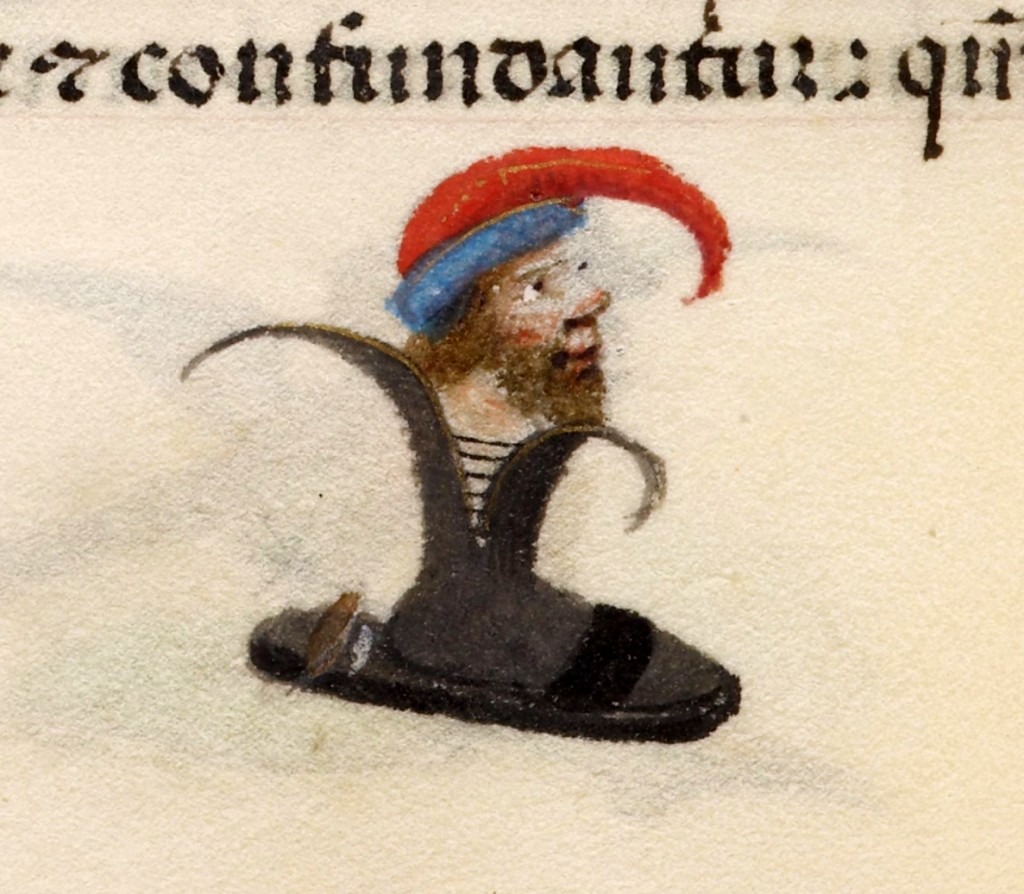 ⁊ confundantur: qui̅